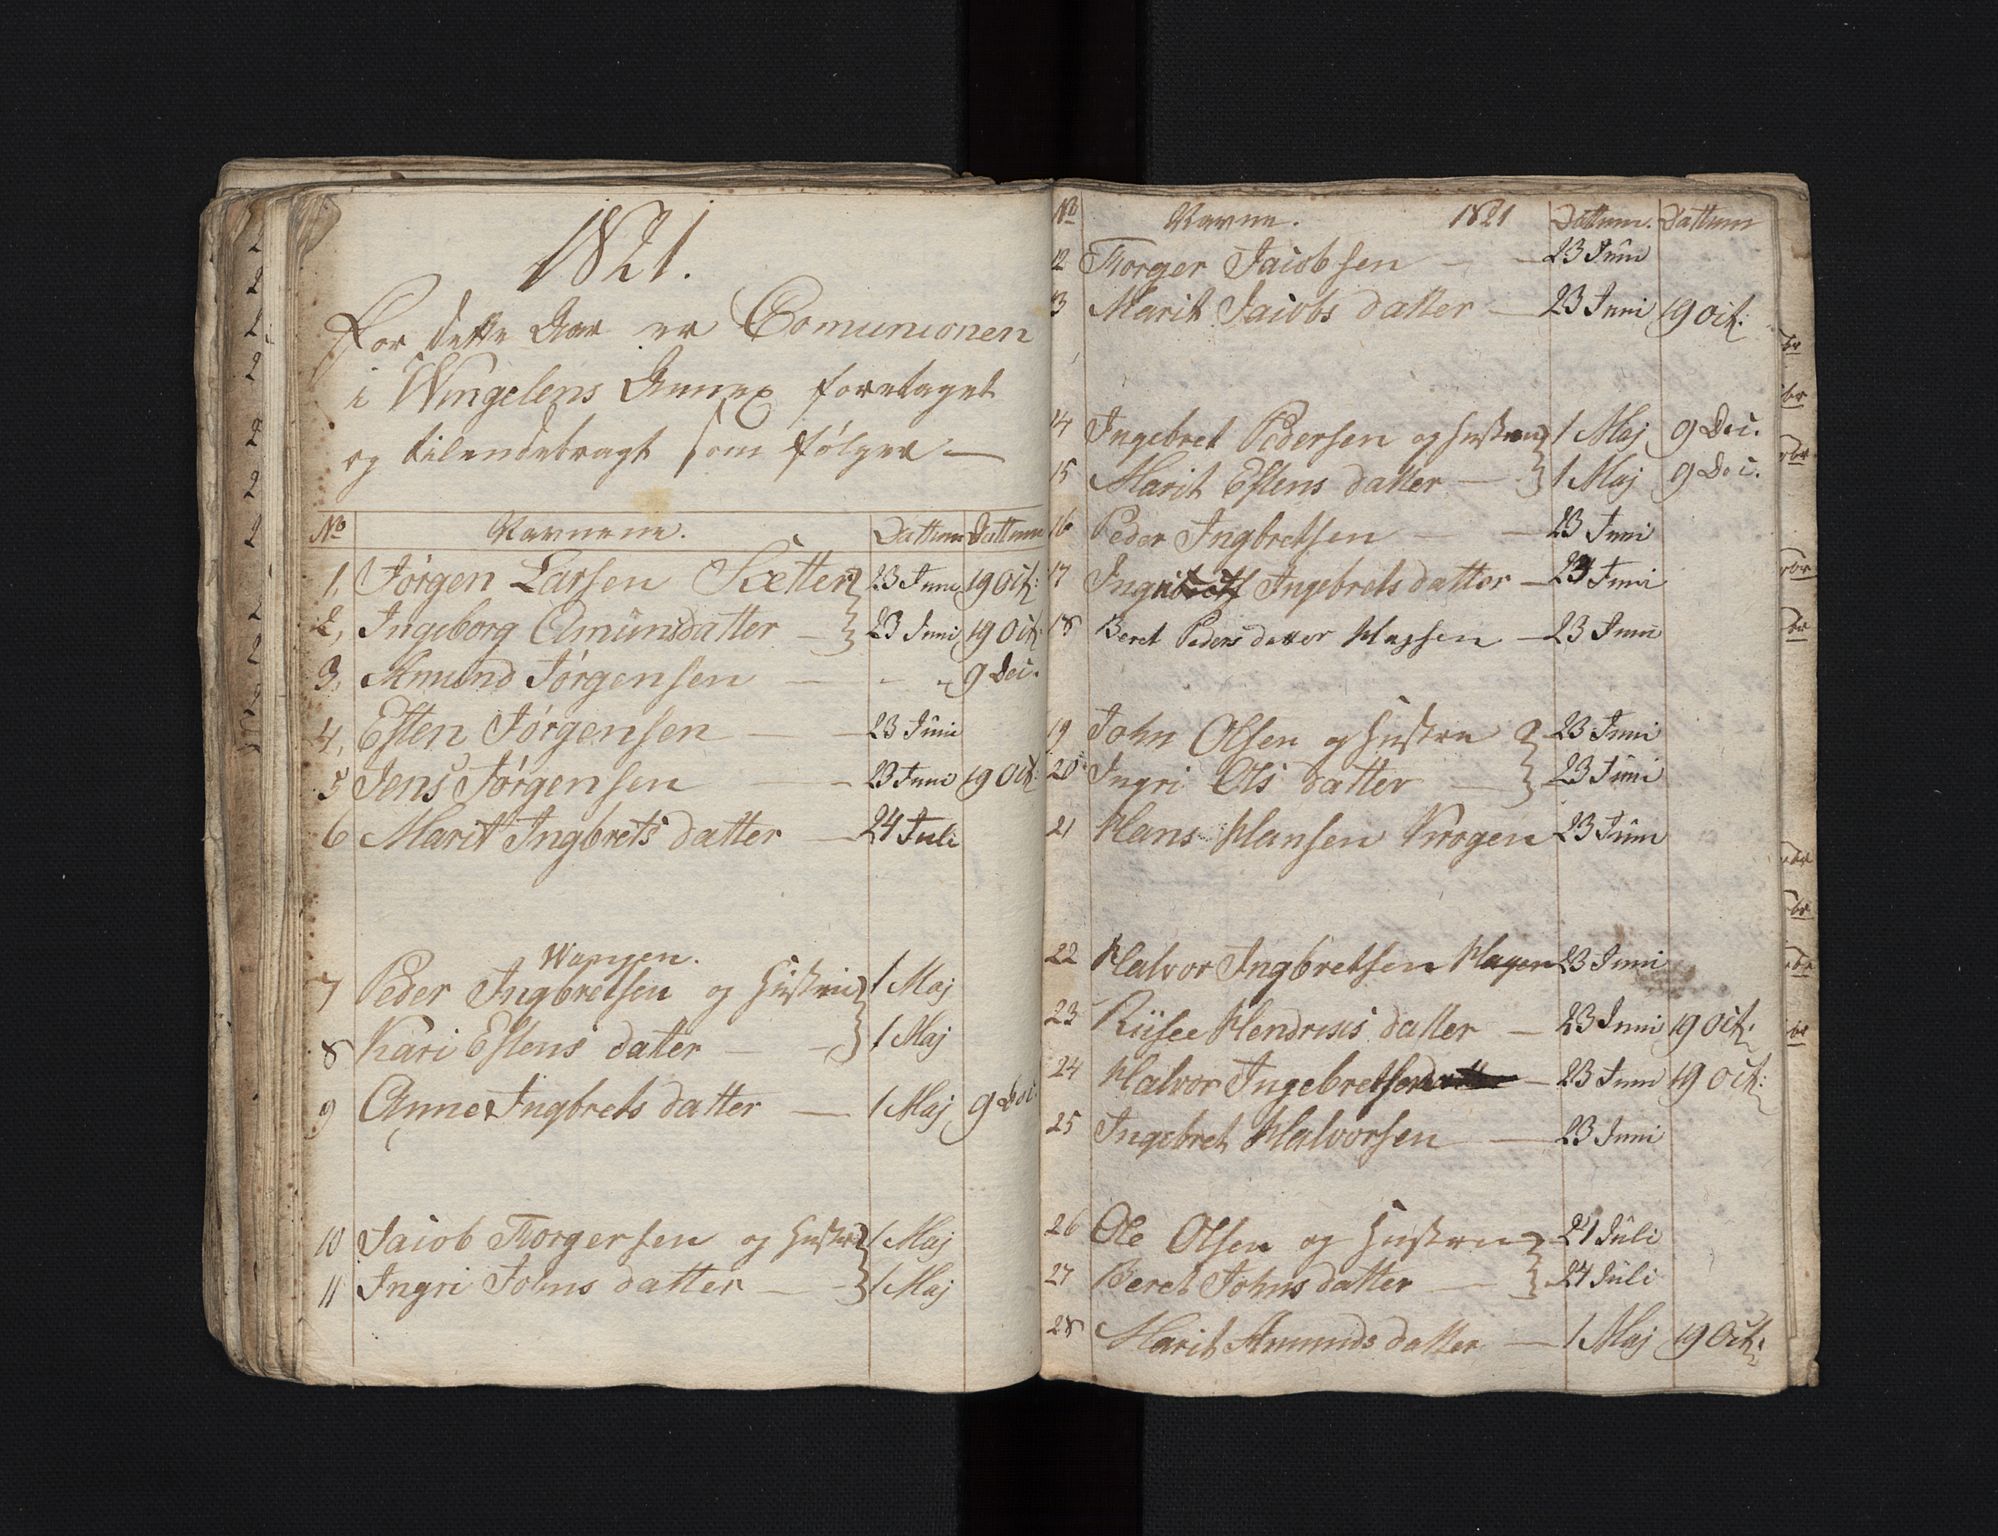 1821.
For dette Aar er Comunionen
i Wingelens Annex foretaget
og tilendebragt som følger —
No Navnene. Dattum Dattum
1, Jørgen Larsen Sætter 23 Juni 19 Oct:
2, Ingeborg Amunsdatter — 23 Juni 19 Oct:
3, Amund Jørgensen - - - 9 Dec.
4, Esten Jørgensen — — 23 Juni
5 Jens Jørgensen - 23 Juni 19 Oct:
6 Marit Ingbrets datter — 24 Juli
Wangen.
7 Peder Ingbretsen og Hustru 1 Maj
8 Kari Estens datter — — 1 Maj
9 Anne Ingbrets datter — 1 Maj 9 Dec:
10 Jacob Torgersen og Hustru 1 Maj
11 Ingri Johns datter — — 1 Maj
No Navne. 1821 Dattum. Dattum
12 Torger Jacobsen — — 23 Juni
13 Marit Jacobs datter — 23 Juni 19 Oct:
14 Ingebret Pedersen og Hustru 1 Maj 9 Dec.
15 Marit Estens datter — - 1 Maj 9 Dec.
16 Peder Ingbretsen — — 23 Juni
17 Ingri Ingebrets datter — 23 Juni
18 Beret Peders datter — 23 Juni
19 John Olsen og Hustru 23 Juni
20 Ingri Ols datter — 23 Juni
21 Hans Hansen Krogen 23 Juni
22 Halvor Ingbretsen Hagen 23 Juni
23 Hendrics datter — 23 Juni 19 Oct:
24 Halvor Ingebretsen — 23 Juni 19 Oct:
25 Ingebret Halvorsen — 23 Juni
26 Ole Olsen og Hustru 24 Juli
27 Beret Johns datter — 24 Juli
28 Marit Amunds datter — 1 Maj 19 Oct: